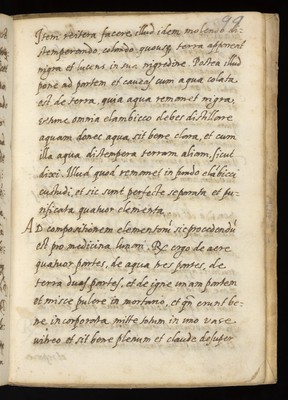 99
Item reitera facere illud idem molendo di-
stemperando, colando, quousq; terra appareat
nigra et lucens in sua nigredine. Postea illud
pone ad partem et caveas cum aqua colata
est de terra, quia aqua remanet nigra,
omnia elambicco debes distillare
aquam donec aqua sit bene clara, et cum
illa aqua distempera terram aliam, sicut
dixi. Illud quod remanet in fondo elabicci
custodi, et sic sunt perfecte separata et pu-
rificata quatuor elementa.
AD compositionem elementorũ sic procedendũ
est pro medicina lunari. Re ergo de aere
quatuor partes, de aqua tres partes, de
terra duas partes, et de igne unam partem
et misce pulere in mortario, et qñ erunt be-
ne incorporata mitte totum in uno vase
vitreo et sit bene plenum et claude desuper